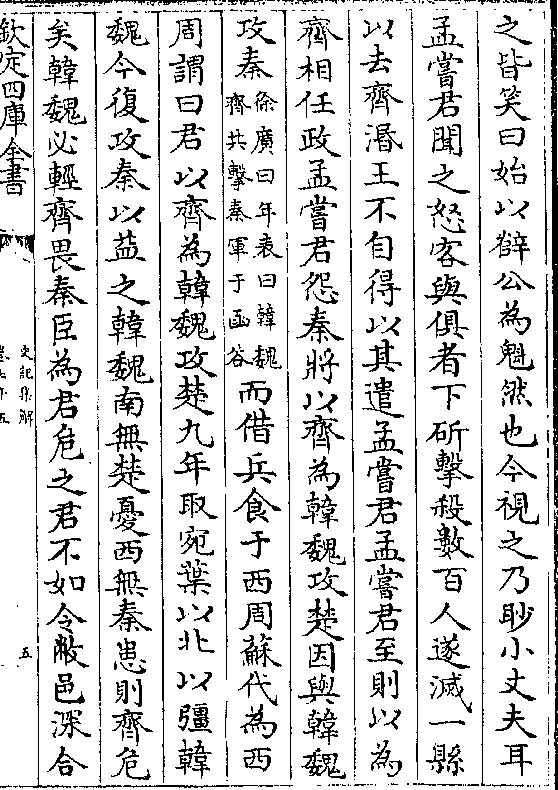 之皆笑曰始以薛公為魁然也今視之乃眇小丈夫耳
孟嘗君聞之怒客與俱者下斫擊殺數百人遂滅一縣
以去齊湣王不自得以其遣孟嘗君孟嘗君至則以為
齊相任政孟嘗君怨秦將以齊為韓魏攻楚因與韓魏
攻秦徐廣曰年表曰韓魏齊共擊秦軍于函谷而借兵食于西周蘇代為西
周謂曰君以齊為韓魏攻楚九年取宛葉以北以彊韓
魏今復攻秦以益之韓魏南無楚憂西無秦患則齊危
矣韓魏必輕齊畏秦臣為君危之君不如令敝邑深合
欽定四庫全書
史記集解
五